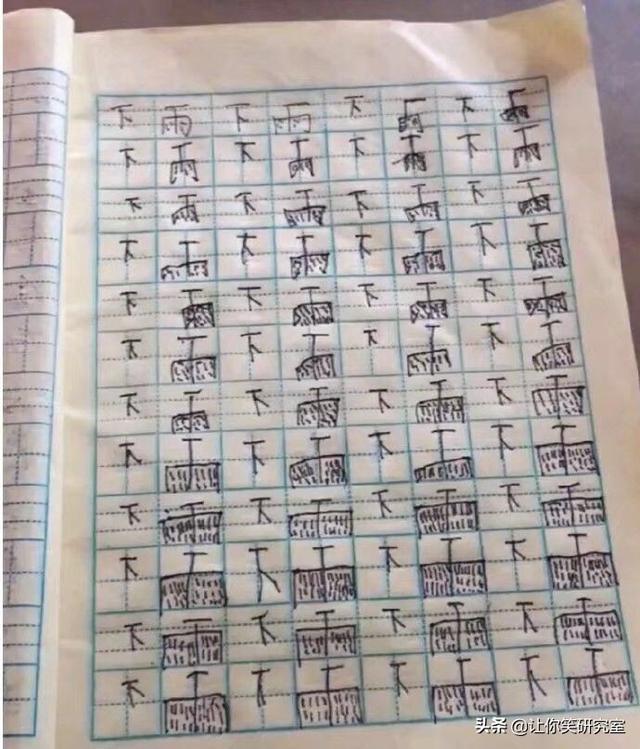 下雨下雨下雨下雨
下雨下雨下雨下雨
下雨下雨下雨下雨
下雨下雨下雨下雨
下雨下雨下雨下雨
下雨下雨下雨下雨
下雨下雨下雨下雨
下雨下雨下雨下雨
下雨下雨下雨下雨
下雨下雨下雨下雨
下雨下雨下雨下雨
下雨下雨下雨下雨
头条 @让你笑研究室